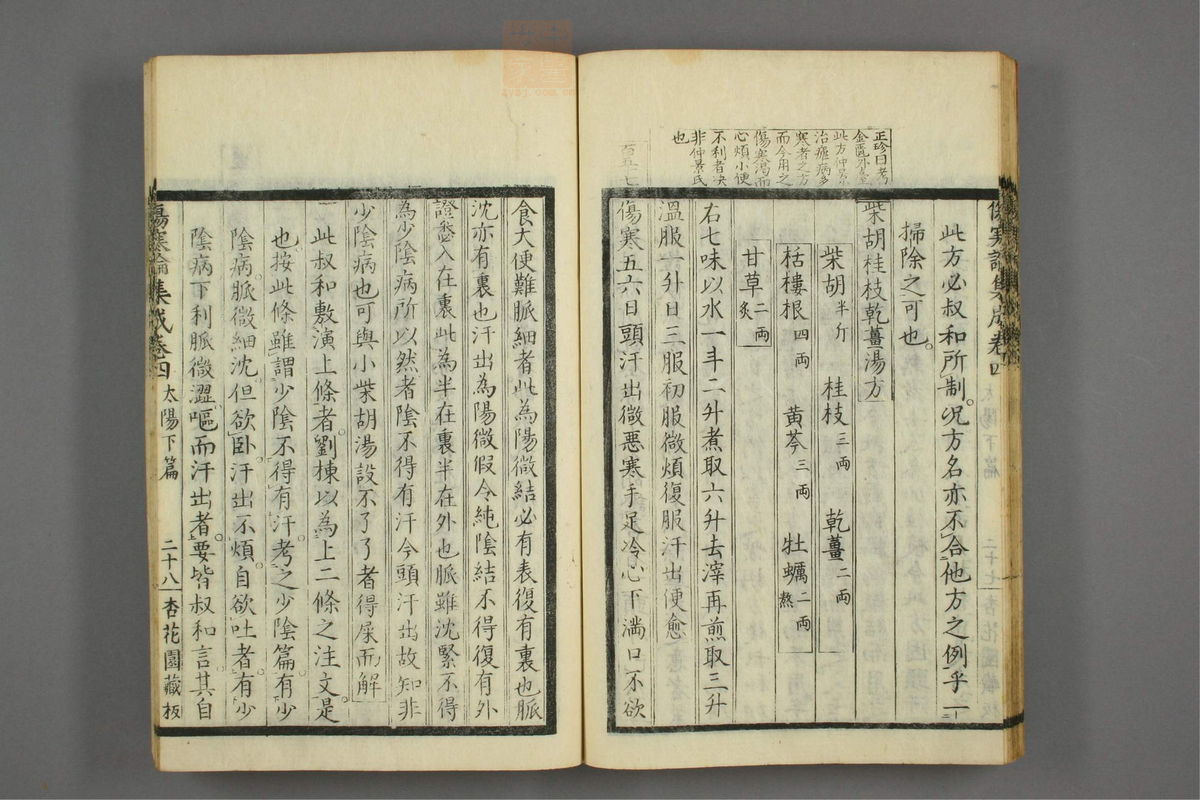 正珍曰考
金匱外臺
此方仲景
治瘧病多
寒者之方
而今用之
傷寒渇而
心煩小便
不利者决
非仲景氏
也
此方必叔和所制况方名亦不合他方之例乎一
掃除之可也
柴胡桂枝乾薑湯方
柴胡半斤 桂枝三両 乾薑二両
栝樓根四両 黄芩三両 牡蠣二両熬
甘草二両炙
右七味以水一斗二升煮取六升去滓再煎取三升
溫服一升日三服初服微煩復服汗出便愈
百五七
傷寒五六日頭汗出微悪寒手足冷心下満口不欲
食大便難脈細者此為陽微結必有表復有裏也脈
沈亦有裏也汗出為陽微假令純陰結不得復有外
證悉入在裏此為半在裏半在外也脈雖沈緊不得
為少陰病所以然者陰不得有汗今頭汗出故知非
少陰病也可與小柴胡湯設不了了者得屎而解
此叔和敷演上條者劉棟以為上二條之注文是
也按此條雖謂少陰不得有汗考之少陰篇有少
陰病脈微細沈但欲卧汗出不煩自欲吐者有少
陰病下利脈微澀嘔而汗出者要皆叔和言其自
傷寒論集成卷四 太陽下篇 二十八 杏花園藏板